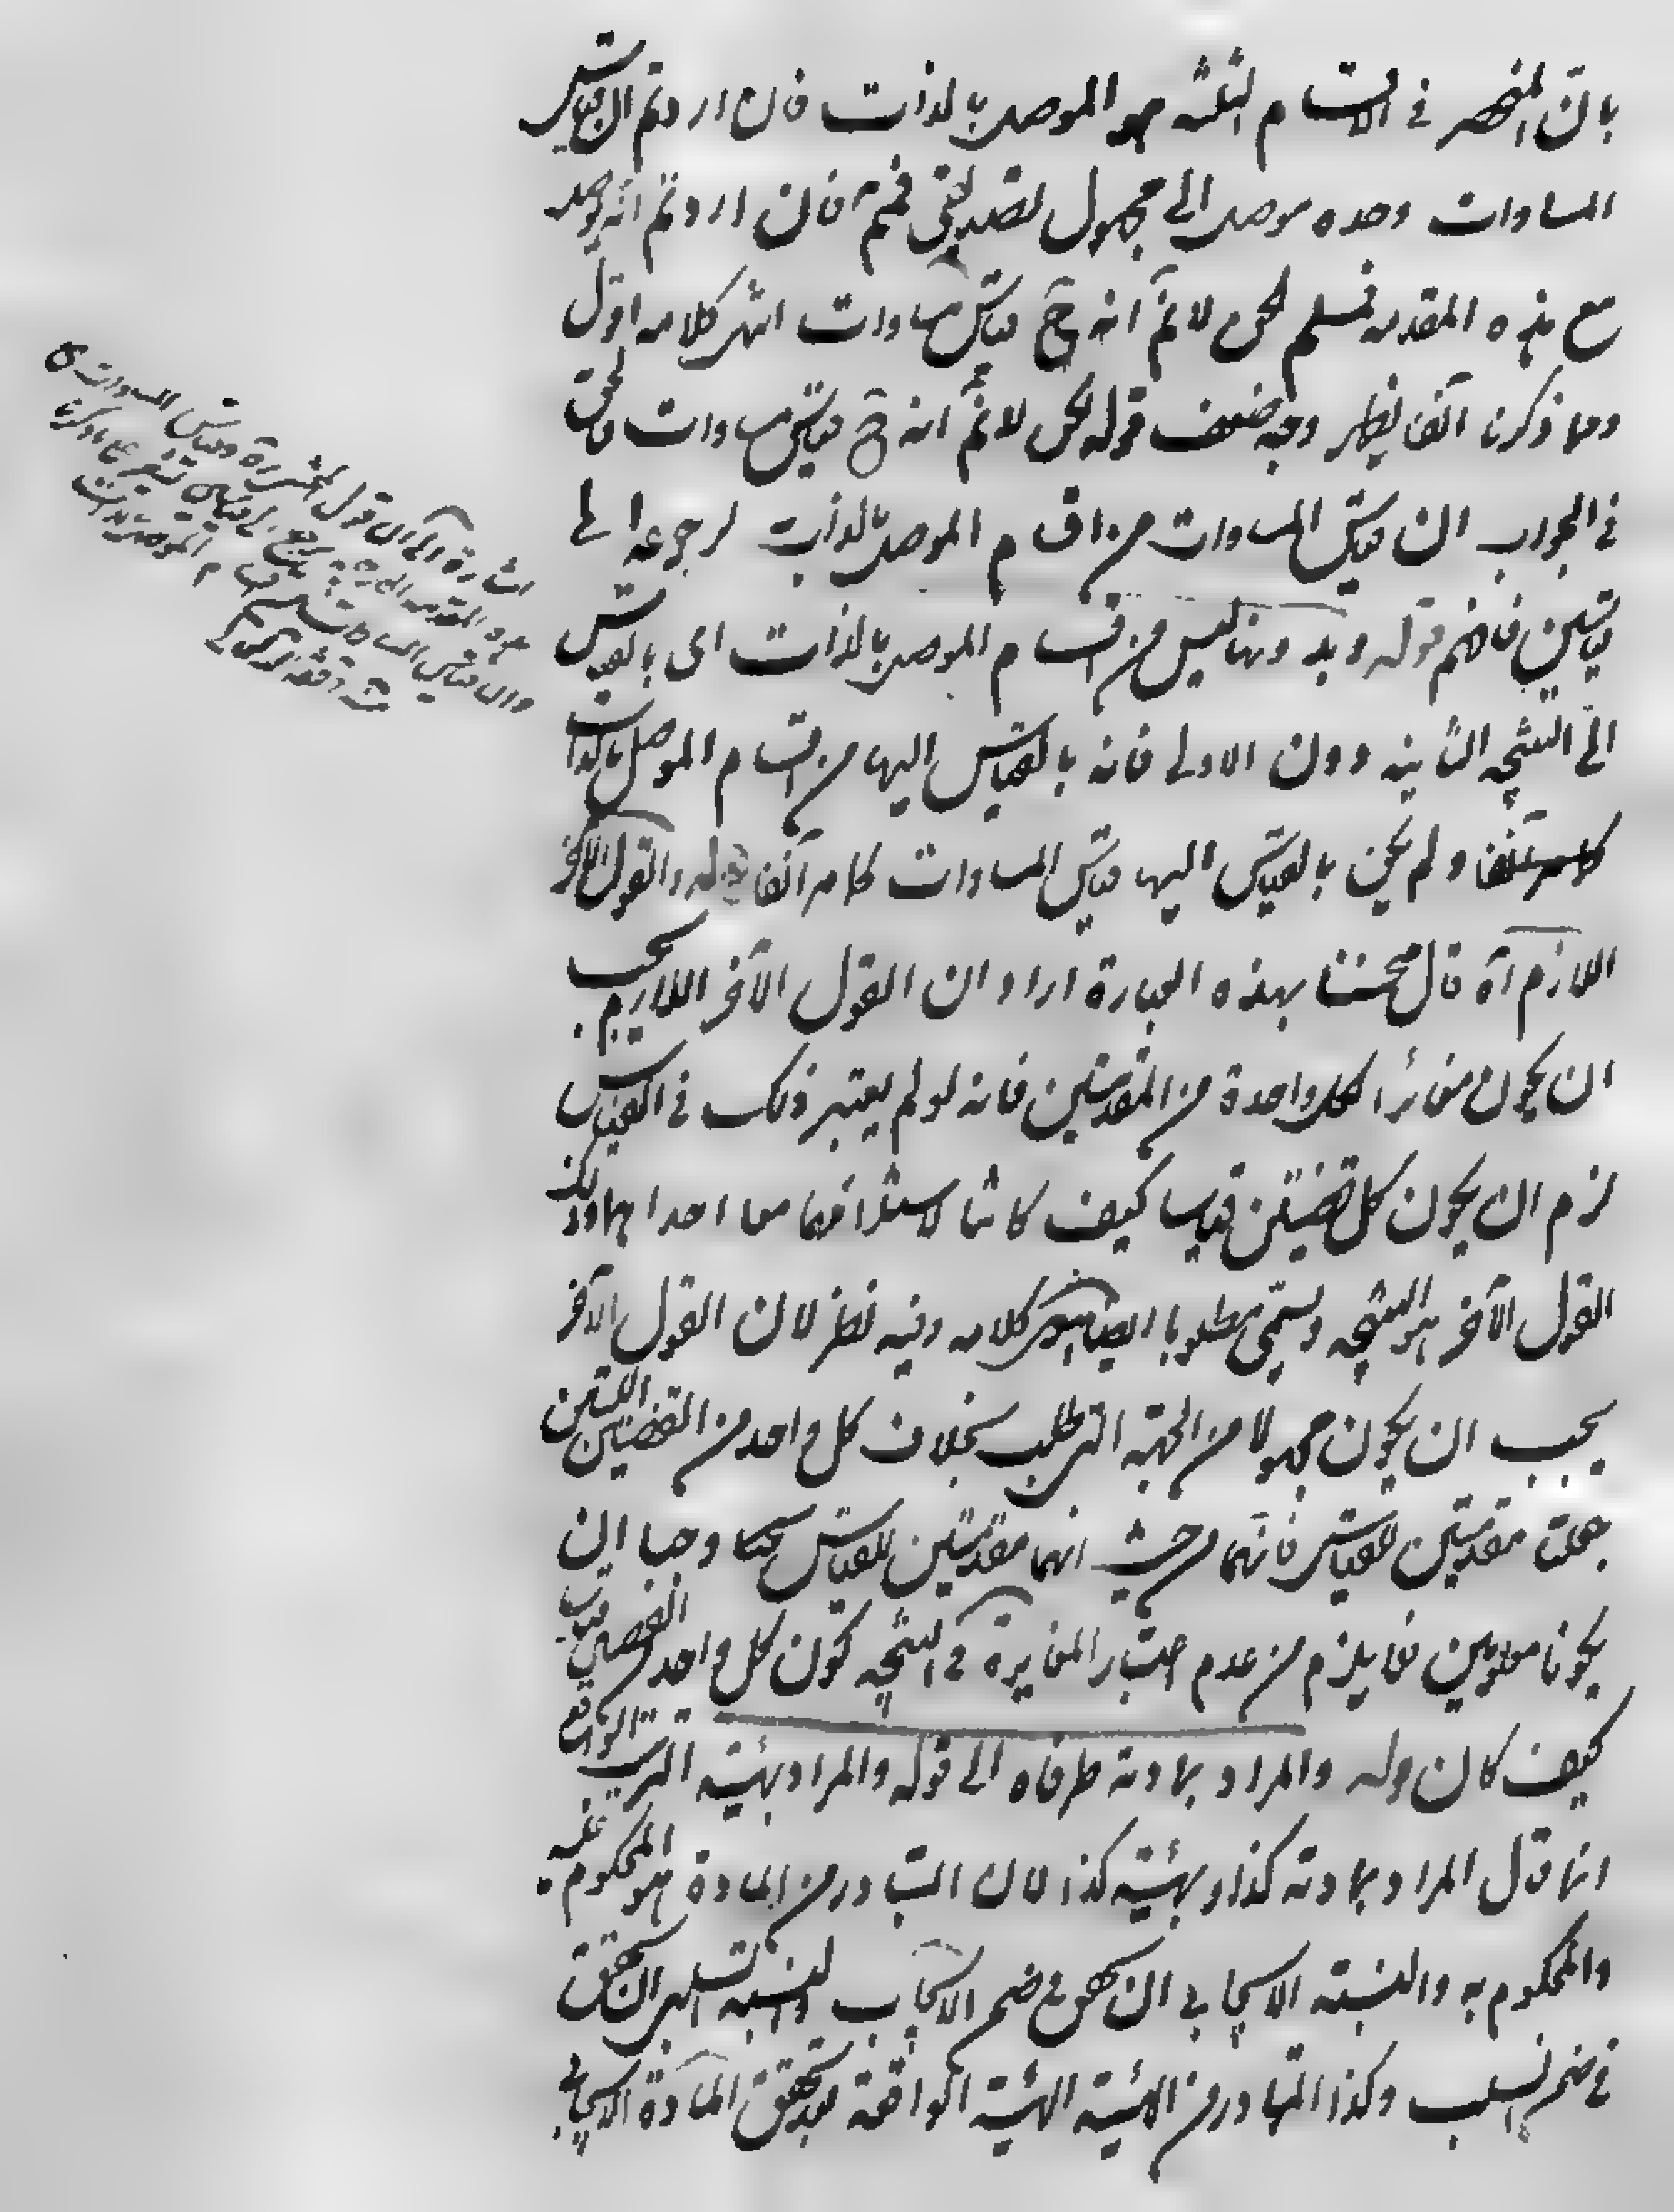 بان المنحصر في الاقسام الثلثه هو الموصل بالذات فان اردتم ان قياس
المساوات وحده موصل الى مجهول تصديقي فمم فان اردتم انه يوصل
مع هذه المقدمه فمسلم لكن لانم انه ح قياس مساوات انتهى كلامه اقول
ومما ذكرنا آنفا يظهر وجه ضعف قوله لكن لانم انه ح قياس مساوات فالحق
في الجواب ان قياس المساوات من اقسام الموصل بالذات لرجوعه الى
قياسين فافهم قوله وبدونها ليس من اقسام الموصل بالذات اى بالقياس
الى النتيجه الثانيه دون الاولى فانه بالقياس اليها من اقسام الموصل بالذات
كما مر آنفا ولم يكن بالقياس اليها قياس المساوات كما مر آنفا قوله والقول الآخر
اللازم آه قال محشنا بهذه العبارة اراد ان القول الآخر اللازم يجب
ان يكون مغائرا لكل واحدة من المقدمتين فانه لو لم يعتبر ذلك في القياس
لزم ان يكون كل قضيتين قياسا كيف كانتا لاستلزامهما معا احداهما وذلك
القول الآخر هو النتيجه ويسمى مطلوبا ايضا انتهى كلامه وفيه نظر لان القول الآخر
يجب ان يكون مجهولا من الجهة التى تطلب بخلاف كل واحد من القضيتين اللتين
جعلتا مقدمتين للقياس فانهما من حيث انهما مقدمتين للقياس يجب ان
يكونا معلومين فما يلزم من عدم اعتبار المغايرة في النتيجه كون كل واحد من القضيتين قياسا
كيف كان قوله والمراد بمادته طرفاه الى قوله والمراد بهيئته الترتيب الواقع
انما قال المراد بمادته كذا وبهيئته كذا لان المتبادر من المادة هو المحكوم عليه
والمحكوم به والنسبته الايجابى ان تحقق في ضمن الايجاب والنسبه السلبى ان تحقق
في ضمن السلب وكذا المتبادر من الهيئية الهيئية الواقعة بعد تحقق المادة الايجابى
اشارة الى ان قول